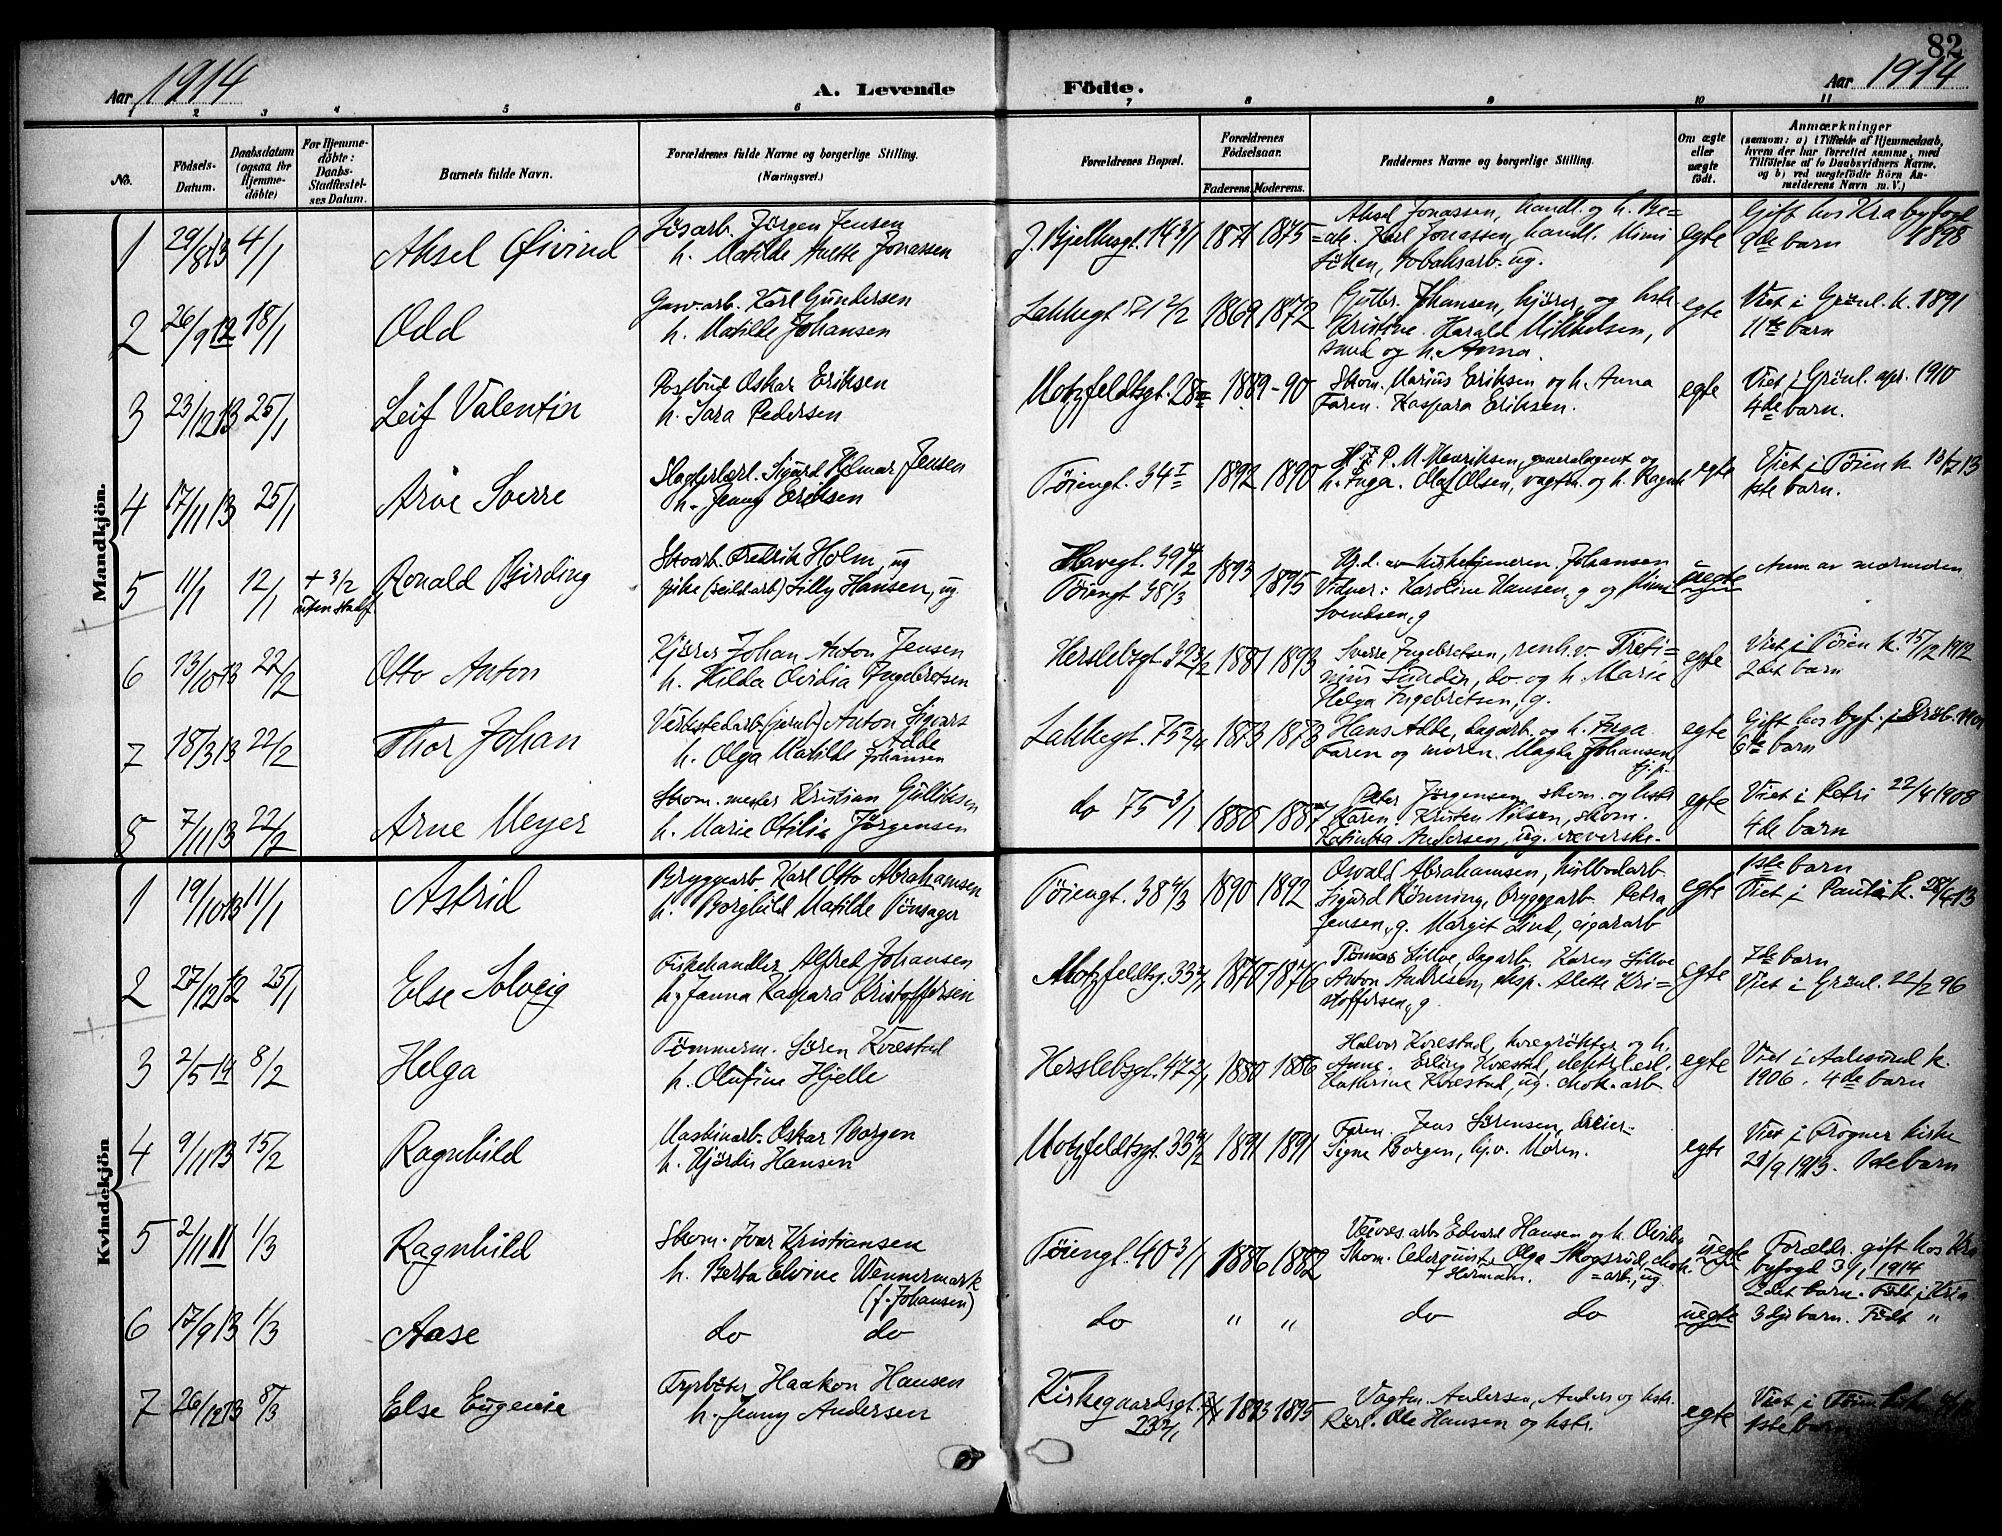 82
Aar 1914 A. Levende Födte. Aar 1914
1 2 3 4 5 6 7 8 9 10 11
No.
Födsels-
Datum.
Daabsdatum
(ogsaa for
Hjemme-
döbte)
For Hjemme-
döbte:
Daabs-
Stadfæstel-
ses Datum.
Barnets fulde Navn.
Forældrenes fulde Navne og borgerlige Stilling.
(Næringsvei.)
Forældrenes Bopæl.
Forældrenes
Födselsaar.
Faderens. Moderens.
Faddernes Navne og borgerlige Stilling.
Om ægte
eller
uægte
födt.
Anmærkninger
(saasom: a) i Tilfælde af Hjemmedaab,
hvem der har forrettet samme, med
Tilföielse af to Daabsvidners Navne,
og b) ved uægtefödte Börn An-
melderens Navn m. V.)
Mandkjön.
1 29/8 13 4/1 Aksel Öivind
Jörgen Jensen
h. Matilde Anette Jonassen
J. Bjelkesgt. 14 3/1 1871 1875
Aksel Jonassen, handl. og h. Be=
ate. Karl Jonassen, handl. Mimi
tobaksarb. ug.
egte
Gift hos Kra byfogd
9de barn 1898
2 26/9 12 18/1 Odd
Gasv.arb. Karl Gundersen
h. Matilde Johansen
Lakkegt 71 2/2 1869 1872
Johansen, kjörer, og hstr
Kristine. Harald Mikkelsen,
smed og h. Anna.
egte
Viet i Grönl. k. 1891
11te barn
3 23/12 13 25/1 Leif Valentin
Postbud Oskar Eriksen
h. Sara Pedersen
Motzfeldtsgt. 28 II 1889-90
Skom. Marius Eriksen og h. Anna
Faren. Kaspara Eriksen.
egte
Viet i Grönl. apr. 1910
4de barn.
4 17/11 13 25/1 Arne Sverre
Slagterlærl. Sigurd Hilmar Jensen
h. Jenny Eriksen
Töiengt. 34 I 1892 1890
P. M. Henriksen, generalagent og
h. Inga. Olaf Olsen, vagtm. og h. Ragnh
egte
Viet i Töien k 13/7 13
1ste barn.
5 11/1 12/1 + 3/2
uten stadf
Ronald Birding
Skoarb. Fredrik Holm, ug
Lilly Hansen, ug
Havegt. 39 4/2
Töiengt 38 4/3
1893 1895
Hj.d. av kirketjeneren Johansen
Vidner: Karoline Hansen, g og
Svendsen, g
uegte
Anm av mormoren
6 13/10 13 22/2 Otto Anton
Kjörer Johan Anton Jensen
h. Hilda Ovidia Ingebretsen
Herslebsgt. 32 3/2 1881 1893
Sverre Ingebretsen, renh.v.
Sundin, do og h. Marie
Helga Ingebretsen, g.
egte
Viet i Töien k. 15/12 1912
2det barn
7 18/3 13 22/2 Thor Johan
Verkstedarb. (jernb) Anton Sigvart
Adde
h. Olga Matilde Johansen
Lakkegt. 75 2/4 1873 1873
Hans Adde, dagarb. og h. Inga
Faren og moren. Magda Johansen,
tj.p.
egte
Gift hos byf. i Dröb.
6te barn
8 7/11 13 22/2 Arne Meyer
Skom.mester Kristian Gulliksen
h. Marie Otilia Jörgensen
do 75 3/1 1880 1887
Peter Jörgensen, skom. og hstr
Karen. Kristen Nilsen, skom.
Andersen, ug. veverske.
egte
Viet i Petri 22/4 1908
4de barn
Kvindekjön
1 19/10 13 11/1 Astrid
Bryggearb Karl Otto Abrahamsen
h. Borghild Matilde Tönsager
Töiengt. 38 4/3 1890 1892
Osvald Abrahamsen,
Sigurd Rönning, bryggearb. Petra
Jensen, g. Margit Lind, cigararb
egte
1ste barn
Viet i Paulik. 28/6 13
2 27/12 12 25/1 Else Solveig
Fiskehandler Alfred Johansen
h. Janna Kaspara Kristoffersen
Motzfeldtsg. 33 4/1 1870 1876
Tomas Lillve, dagarb. Karen Lillve
Anton Andresen, eksp. Alette Kri=
stoffersen, g.
egte
7de barn
Viet i Grönl. 22/2 96
3 2/5 14 8/2 Helga
Tömmerm. Sören Kvæstad
h. Olufine Hjelle
Herslebsgt. 47 2/1 1880 1886
Halvor Kvæstad, kvægrökter og h.
Anne. Erling Kvæstad,
Kathrine Kvæstad, ug. chok.arb
egte
Viet i Aalesund k.
1906. 4de barn
4 9/11 13 15/2 Ragnhild
Maskinarb. Oskar Borgen
h. Hjördis Hansen
Motzfeldtsgt. 33 4/2 1891 1891
Faren. Jens Sörensen, dreier
Signe Borgen, hj.v. Moren.
egte
Viet i Frogner kirke
21/9 1913. 1ste barn
5 2/11 11 1/3 Ragnhild
Skom. Ivar Kristiansen
h. Berta Elvine Wennermark
(f. Johansen)
Töiengt. 40 3/1 1886 1882
Edvard Hansen og h. Ovidia
Skom. Cederquist, Olga Skogsrud, chok.
+ Hermann. =arb, ug.
uegte
Forældr. gift hos Kra
byfogd 3/1 1914
2det barn. Födt i Kria.
6 17/9 13 1/3 Aase
do do
do " " do do uegte
3dje barn. Födt "
7 26/12 13 8/3 Else Eugenie
Fyrböter Haakon Hansen
h. Jenny Andersen
Kirkegaardsgt.
23 2/1
1893 1895
Vagtm. Andersen, Anders og hstr.
Rörl. Ole Hansen og hstr.
egte
Viet i Töien kirke
1ste barn